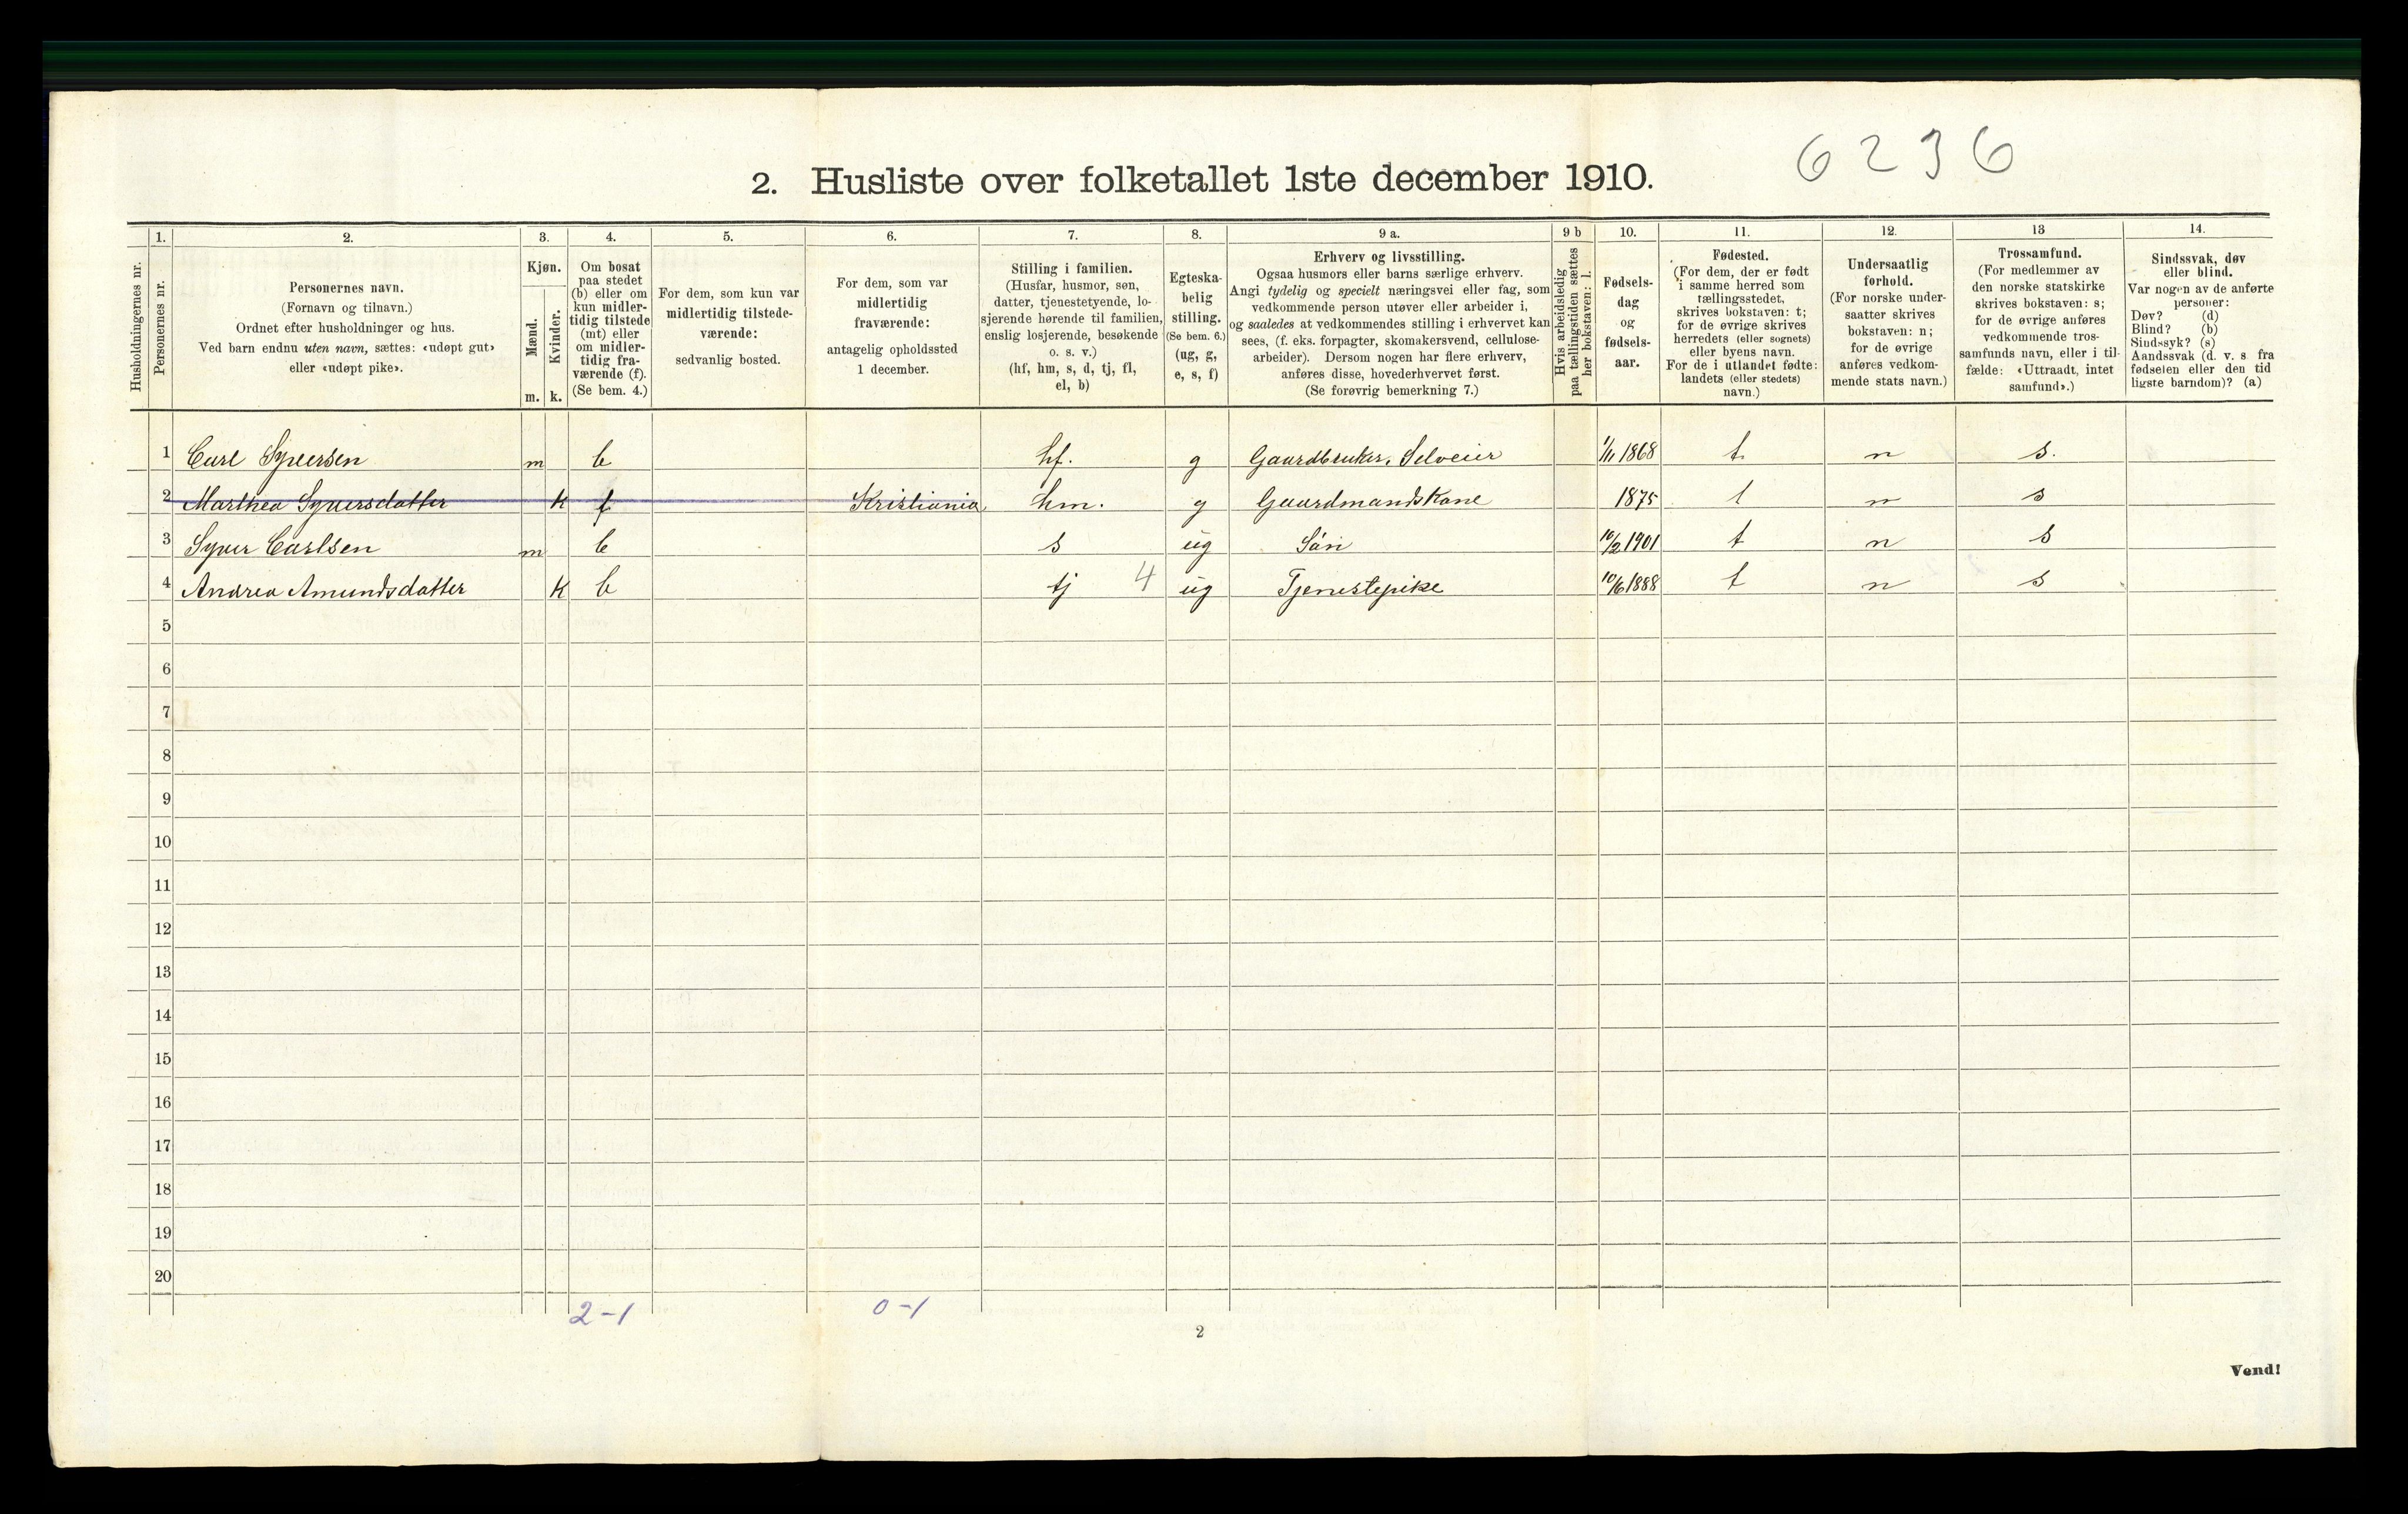 6236
2. Husliste over folketallet 1ste december 1910.
Husholdningernes nr.
1.
Personernes nr.
2.
Personernes navn.
(Fornavn og tilnavn.)
Ordnet efter husholdninger og hus.
Ved barn endnu uten navn, sættes: «udøpt gut»
eller «udøpt pike».
3.
Kjøn.
Mænd.
Kvinder.
m. k.
4.
Om bosat
paa stedet
(b) eller om
kun midler-
tidig tilstede
(mt) eller
om midler-
tidig fra-
værende (f).
(Se bem. 4.)
5.
For dem, som kun var
midlertidig tilstede-
værende:
sedvanlig bosted.
6.
For dem, som var
midlertidig
fraværende:
antagelig opholdssted
1 december.
7.
Stilling i familien.
(Husfar, husmor, søn,
datter, tjenestetyende, lo-
sjerende hørende til familien,
enslig losjerende, besøkende
o. s. v.)
(hf, hm, s, d, tj, fl,
el, b)
8.
Egteska-
belig
stilling.
(Se bem. 6.)
(ug, g,
e, s, f)
9 a.
Erhverv og livsstilling.
Ogsaa husmors eller barns særlige erhverv.
Angi tydelig og specielt næringsvei eller fag, som
vedkommende person utøver eller arbeider i,
og saaledes at vedkommendes stilling i erhvervet kan
sees, (f. eks. forpagter, skomakersvend, cellulose-
arbeider). Dersom nogen har flere erhverv,
anføres disse, hovederhvervet først.
(Se forøvrig bemerkning 7.)
9 b
Hvis arbeidsledig
paa tællingstiden sættes
her bokstaven: l.
10.
Fødsels-
dag
og
fødsels-
aar.
11.
Fødested.
(For dem, der er født
i samme herred som
tællingsstedet,
skrives bokstaven: t;
for de øvrige skrives
herredets (eller sognets)
eller byens navn.
For de i utlandet fødte:
landets (eller stedets)
navn.)
12.
Undersaatlig
forhold.
(For norske under-
saatter skrives
bokstaven: n;
for de øvrige
anføres vedkom-
mende stats navn.)
13
Trossamfund.
(For medlemmer av
den norske statskirke
skrives bokstaven: s;
for de øvrige anføres
vedkommende tros-
samfunds navn, eller i til-
fælde: «Uttraadt, intet
samfund».)
14.
Sindssvak, døv
eller blind.
Var nogen av de anførte
personer:
Døv? (d)
Blind? (b)
Sindssyk? (s)
Aandssvak (d. v. s fra
fødselen eller den tid
ligste barndom)? (a)
1 Carl Syversen m b hf. g Gaardbruker, Selveier 1/11 1868 t n s.
2 Marthea Syversdatter k f Kristiania hm. g Gaardmandskone 1875 t n s
3 Syver Carlsen m b s ug Sön 10/2 1901 t n s
4 Andrea Amundsdatter k b tj 4 ug Tjenestepike 10/6 1888 t n s
5
6
7
8
9
10
11
12
13
14
15
16
17
18
19
20
2-1 0-1
2
Vend!